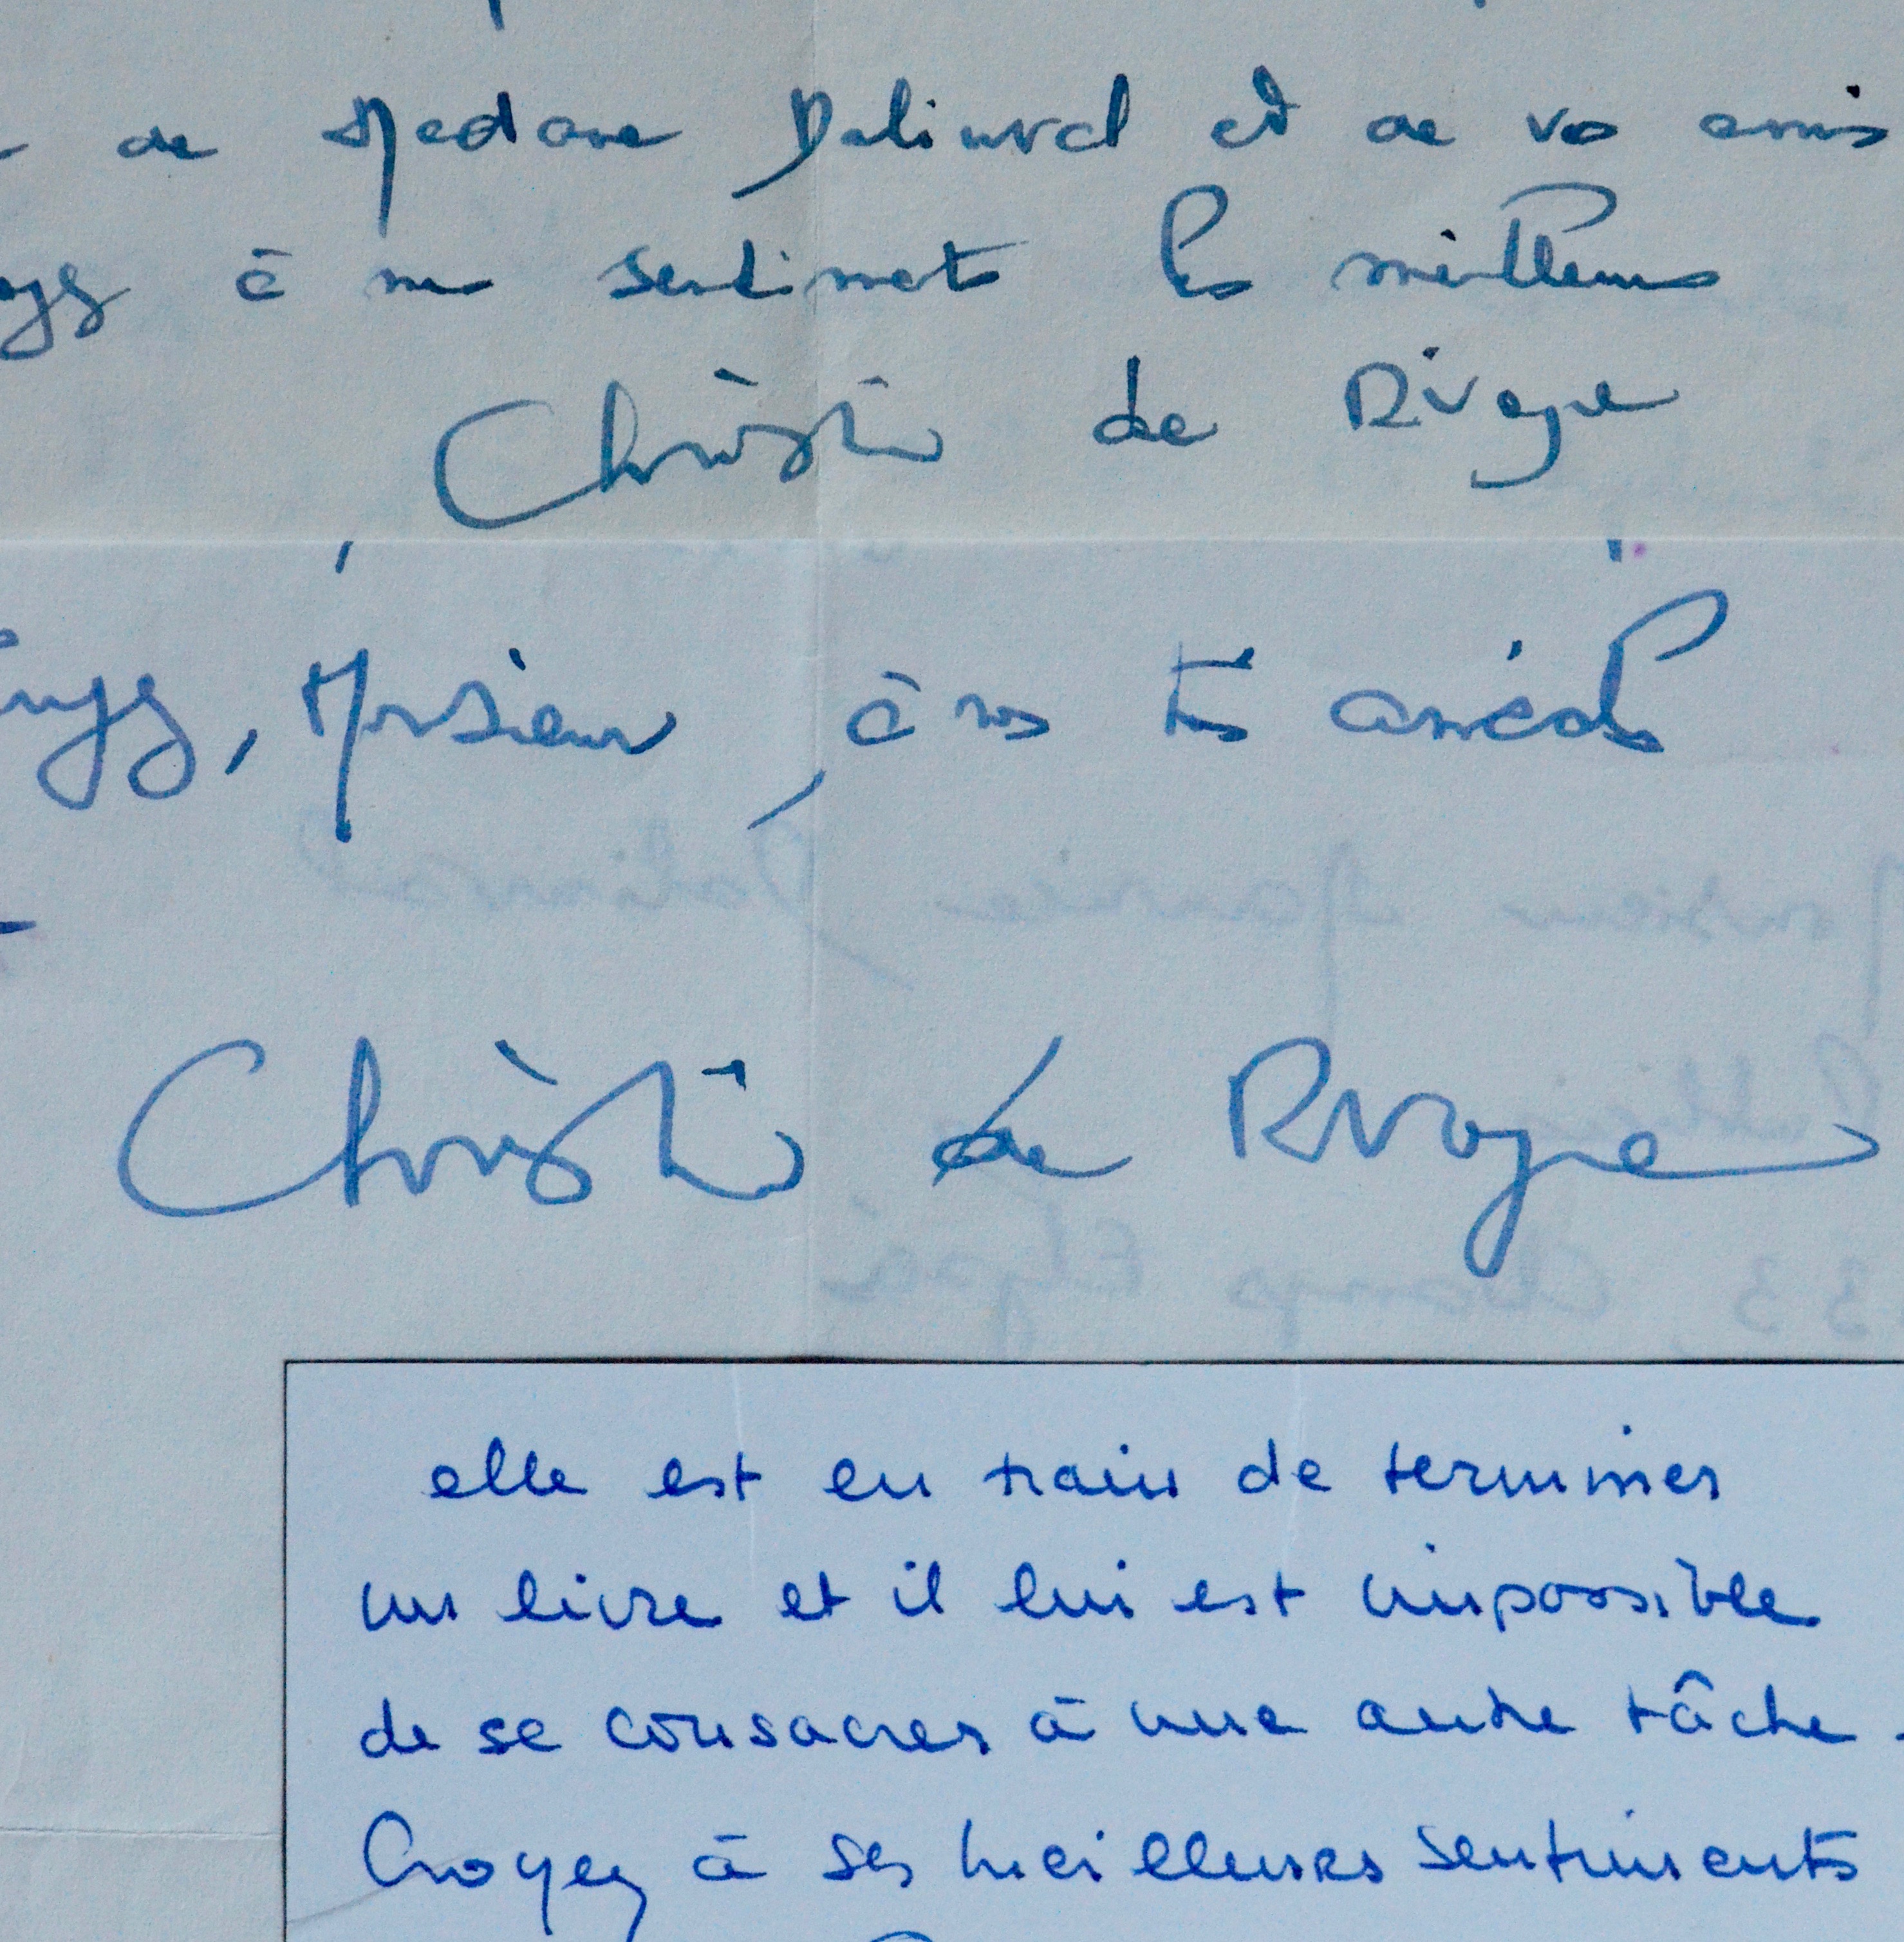 de Madame Dalinval et de vos amis
à mes sentiments les meilleurs
Christine de Rivoyre
, Monsieur, à nos très amicals
Christine de Rivoyre
Monsieur Maurice Dalinval
Publicis
33, Champs Elysées
elle est en train de terminer
un livre et il lui est impossible
de se consacrer à une autre tâche.
Croyez à ses meilleurs sentiments